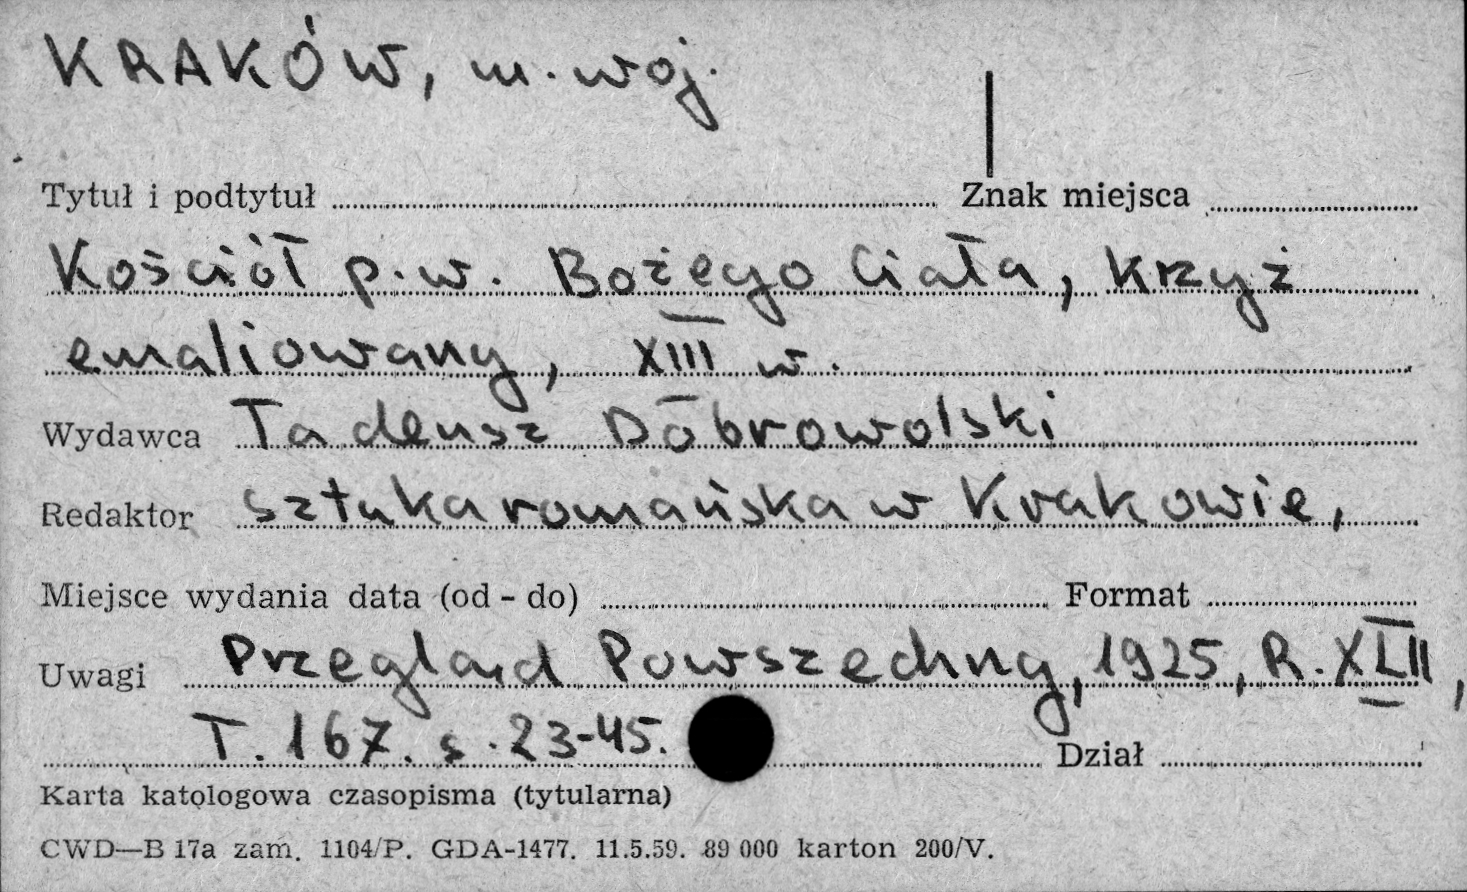 KRAKÓW, m. woj.
Tytuł i podtytuł Znak miejsca
Kościół p.w. Bożego Ciała, krzyż
emaliowany, XIII w.
Wydawca Tadeusz Dobrowolski
Redaktor Sztuka romańska w Krakowie,
Miejsce wydania data (od - do) Format
Uwagi Przegląd Powszechny, 1925, R. XLII,
T. 167. s. 23-45. Dział
Karta katologowa czasopisma (tytularna)
CWD—B 17a zam. 1104/P. GDA-1477. 11.5.59. 89 000 karton 200/V.